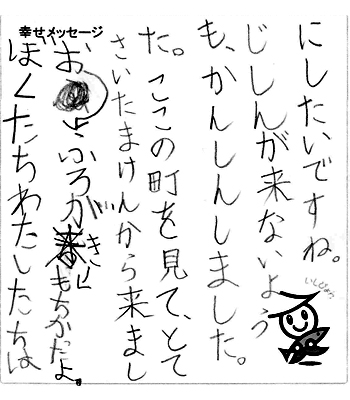 幸せメッセージ
ぼくたちわたしたちは
おふろがきもちかったよ。
さいたまけんから来まし
た。ここの町を見て、とて
も、かんしんしました。
じしんが来ないよう
にしたいですね。